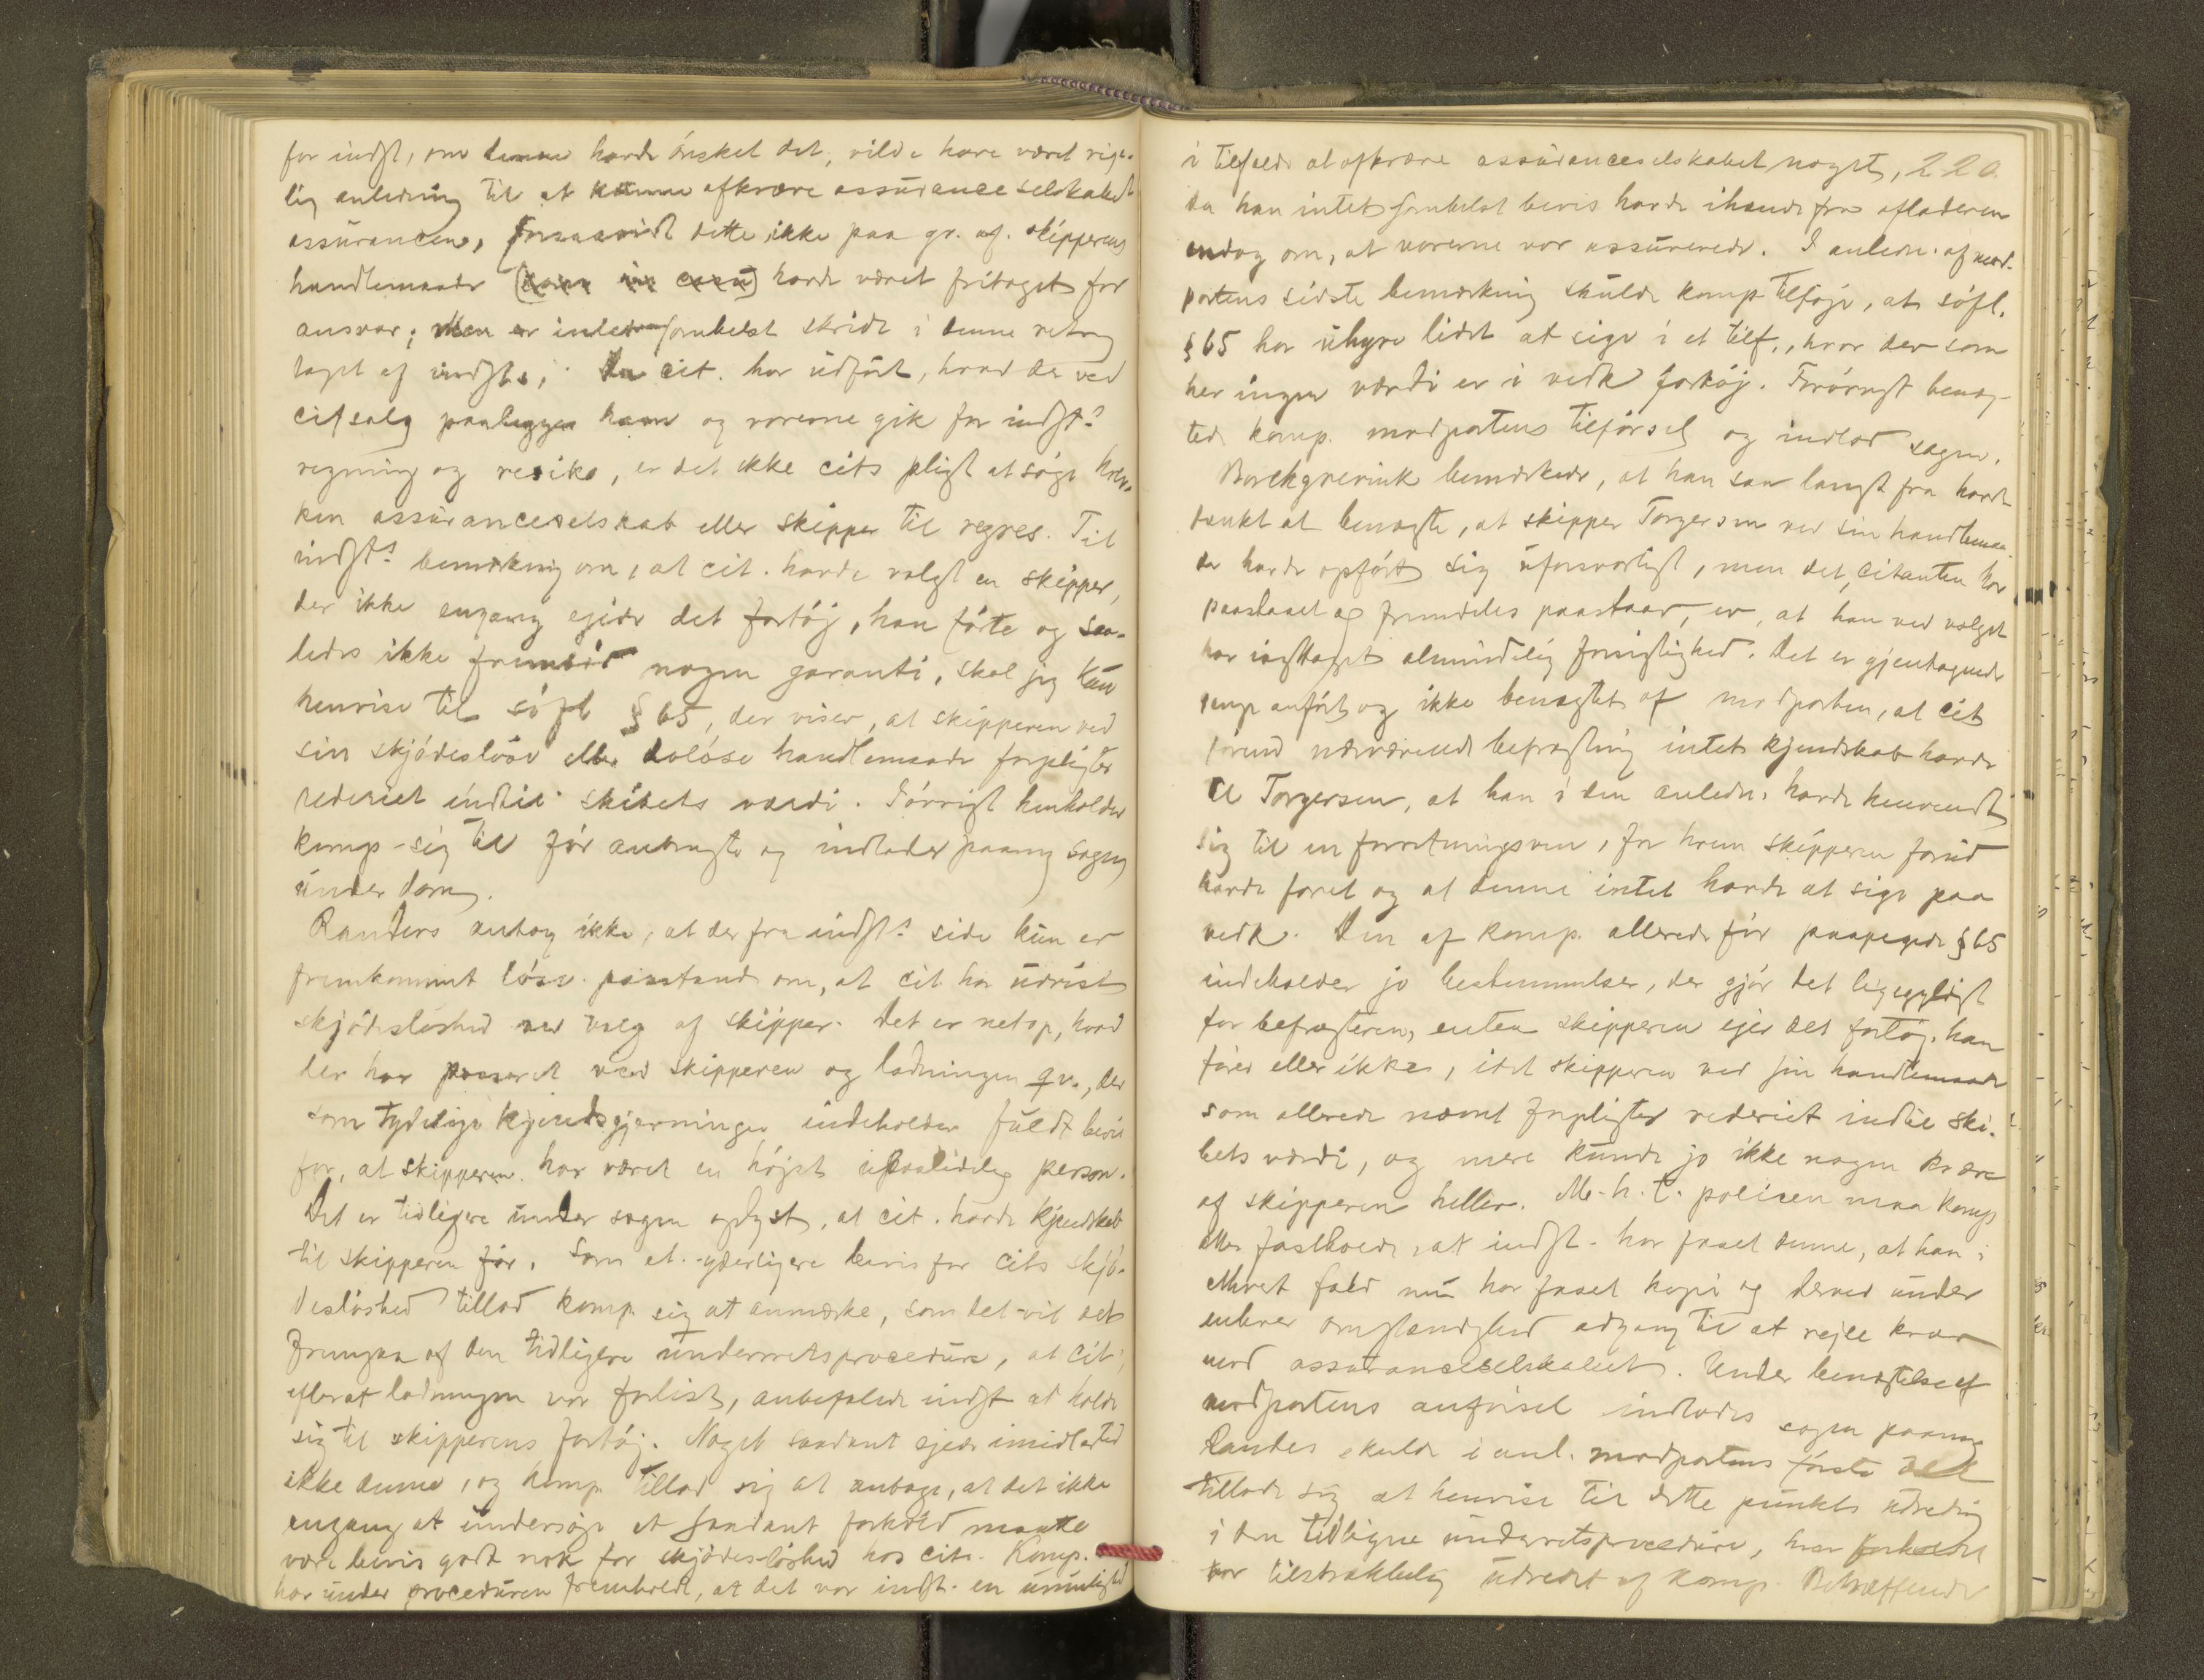 for indst, om denne havde ønsket det, vilde have været rige-
lig anledning til at kunne afkræve assuranceselskabet
assurancen, forsaavidt dette ikke paa gr. af. skipperens
handlemaade (som in casu) havde været fritaget for
ansvar; Men er intetsomhelst skridt i denne retng
taget af indsts, Da cit. har udført, hvad der ved
cifsalg paalegges ham og varerne gik for indsts
regning og resiko, er det ikke cits pligt at søge hver-
ken assuranceselskab eller skipper til regres. Til
indsts bemerkning om, at cit. havde valgt en skipper,
der ikke engang ejede det fartøj, han førte og saa-
ledes ikke frembød nogen garanti, skal jeg kun
henvise til søfl § 65, der viser, at skipperen ved
sin skjødesløse eller doløse handlemaade forpligter
rederiet indtil skibets værdi. Iøvrigt henholder
komp sig til før anbragte og indlader paany sagen
under dom.
Randers antog ikke, at der fra indsts side kun er
fremkommet løse paastand om, at cit har udvist
skjødesløshed ved valg af skipper. Det er netop, hvad
der har passeret med skipperen og ladningen qv., der
som tydelige kjendsgjerninger indeholder fuldt bevis
for, at skipperen har været en højst upaalidelig person.
Det er tidligere under sagen oplyst, at cit. havde kjendskab
til skipperen før. Som et yderligere bevis for cits skjø-
desløshed tillod komp. sig at anmærke, som det vil sets
fremgaa af den tidligere underretsprocedure, at cit,
efterat ladningen var forlist, anbefalede indst at holde
sig til skipperens fartøj. Noget saadant ejede imidlertid
ikke denne, og komp. tillod sig at antage, at det ikke
engang at undersøge et saadant forhold maatte
være bevis godt nok for skjødesløshed hos cit. Komp.
har under proceduren fremholdt, at det var indst. en umulighed
i tilfælde at afkræve assuranceselskabet noget, 220.
da han intetsomhelst bevis havde ihænde fra afladeren
endog om, at varerne var assurerede. I anledn. af mod-
partens sidste bemærkning skulde komp tilføje, at søfl.
§ 65 har uhyre lidet at sige i et tilf., hvor der som
her ingen værdi er i vedk fartøj. Forøvrigt benæg-
tede komp. modpartens tilførsel og indlod sagen.
Borchgrevink bemærkede, at han saa langt fra havde
tænkt at benægte, at skipper Torgersen ved sin handlemaa-
de havde opført sig uforsvarligt, men det, citanten har
paastaaet og fremdeles paastaar, er, at han ved valget
har iagttaget almindelig forsigtighed. Det er gjentagende
gange anført og ikke benægtet af modparten, at cit
forud nærværende befragtning intet kjendskab havde
til Torgersen, at han i den anledn. havde henvendt
sig til en forretningsven, for hvem skipperen forud
havde faret og at denne intet havde at sige paa
vedk. Den af komp. allerede før paapegede § 65
indeholder jo bestemmelser, der gjør det ligegyldigt
for befragteren, enten skipperen ejer det fartøj, han
fører eller ikke, idet skipperen ved sin handlemaade
som allerede nævnt forpligter rederiet indtil ski-
bets værdi, og mere kunde jo ikke nogen kræve
af skipperen heller. M. h. t. policen maa komp
atter fastholde, at indst. har faaet denne, at han i
ethvert fald nu har faaet kopi og derved under
enhver omstændighed adgang til at rejse krav
mod assuranceselskabet. Under benægtelse af
modpartens anførsel indlodes sagen paany
Randers skulde i anl. modpartens første del
tillade sig at henvise til dette punkts udreding
i den tidligere underretsprocedure, hvor forholdet
var tilstrækkelig udredet af komp. Betræffende